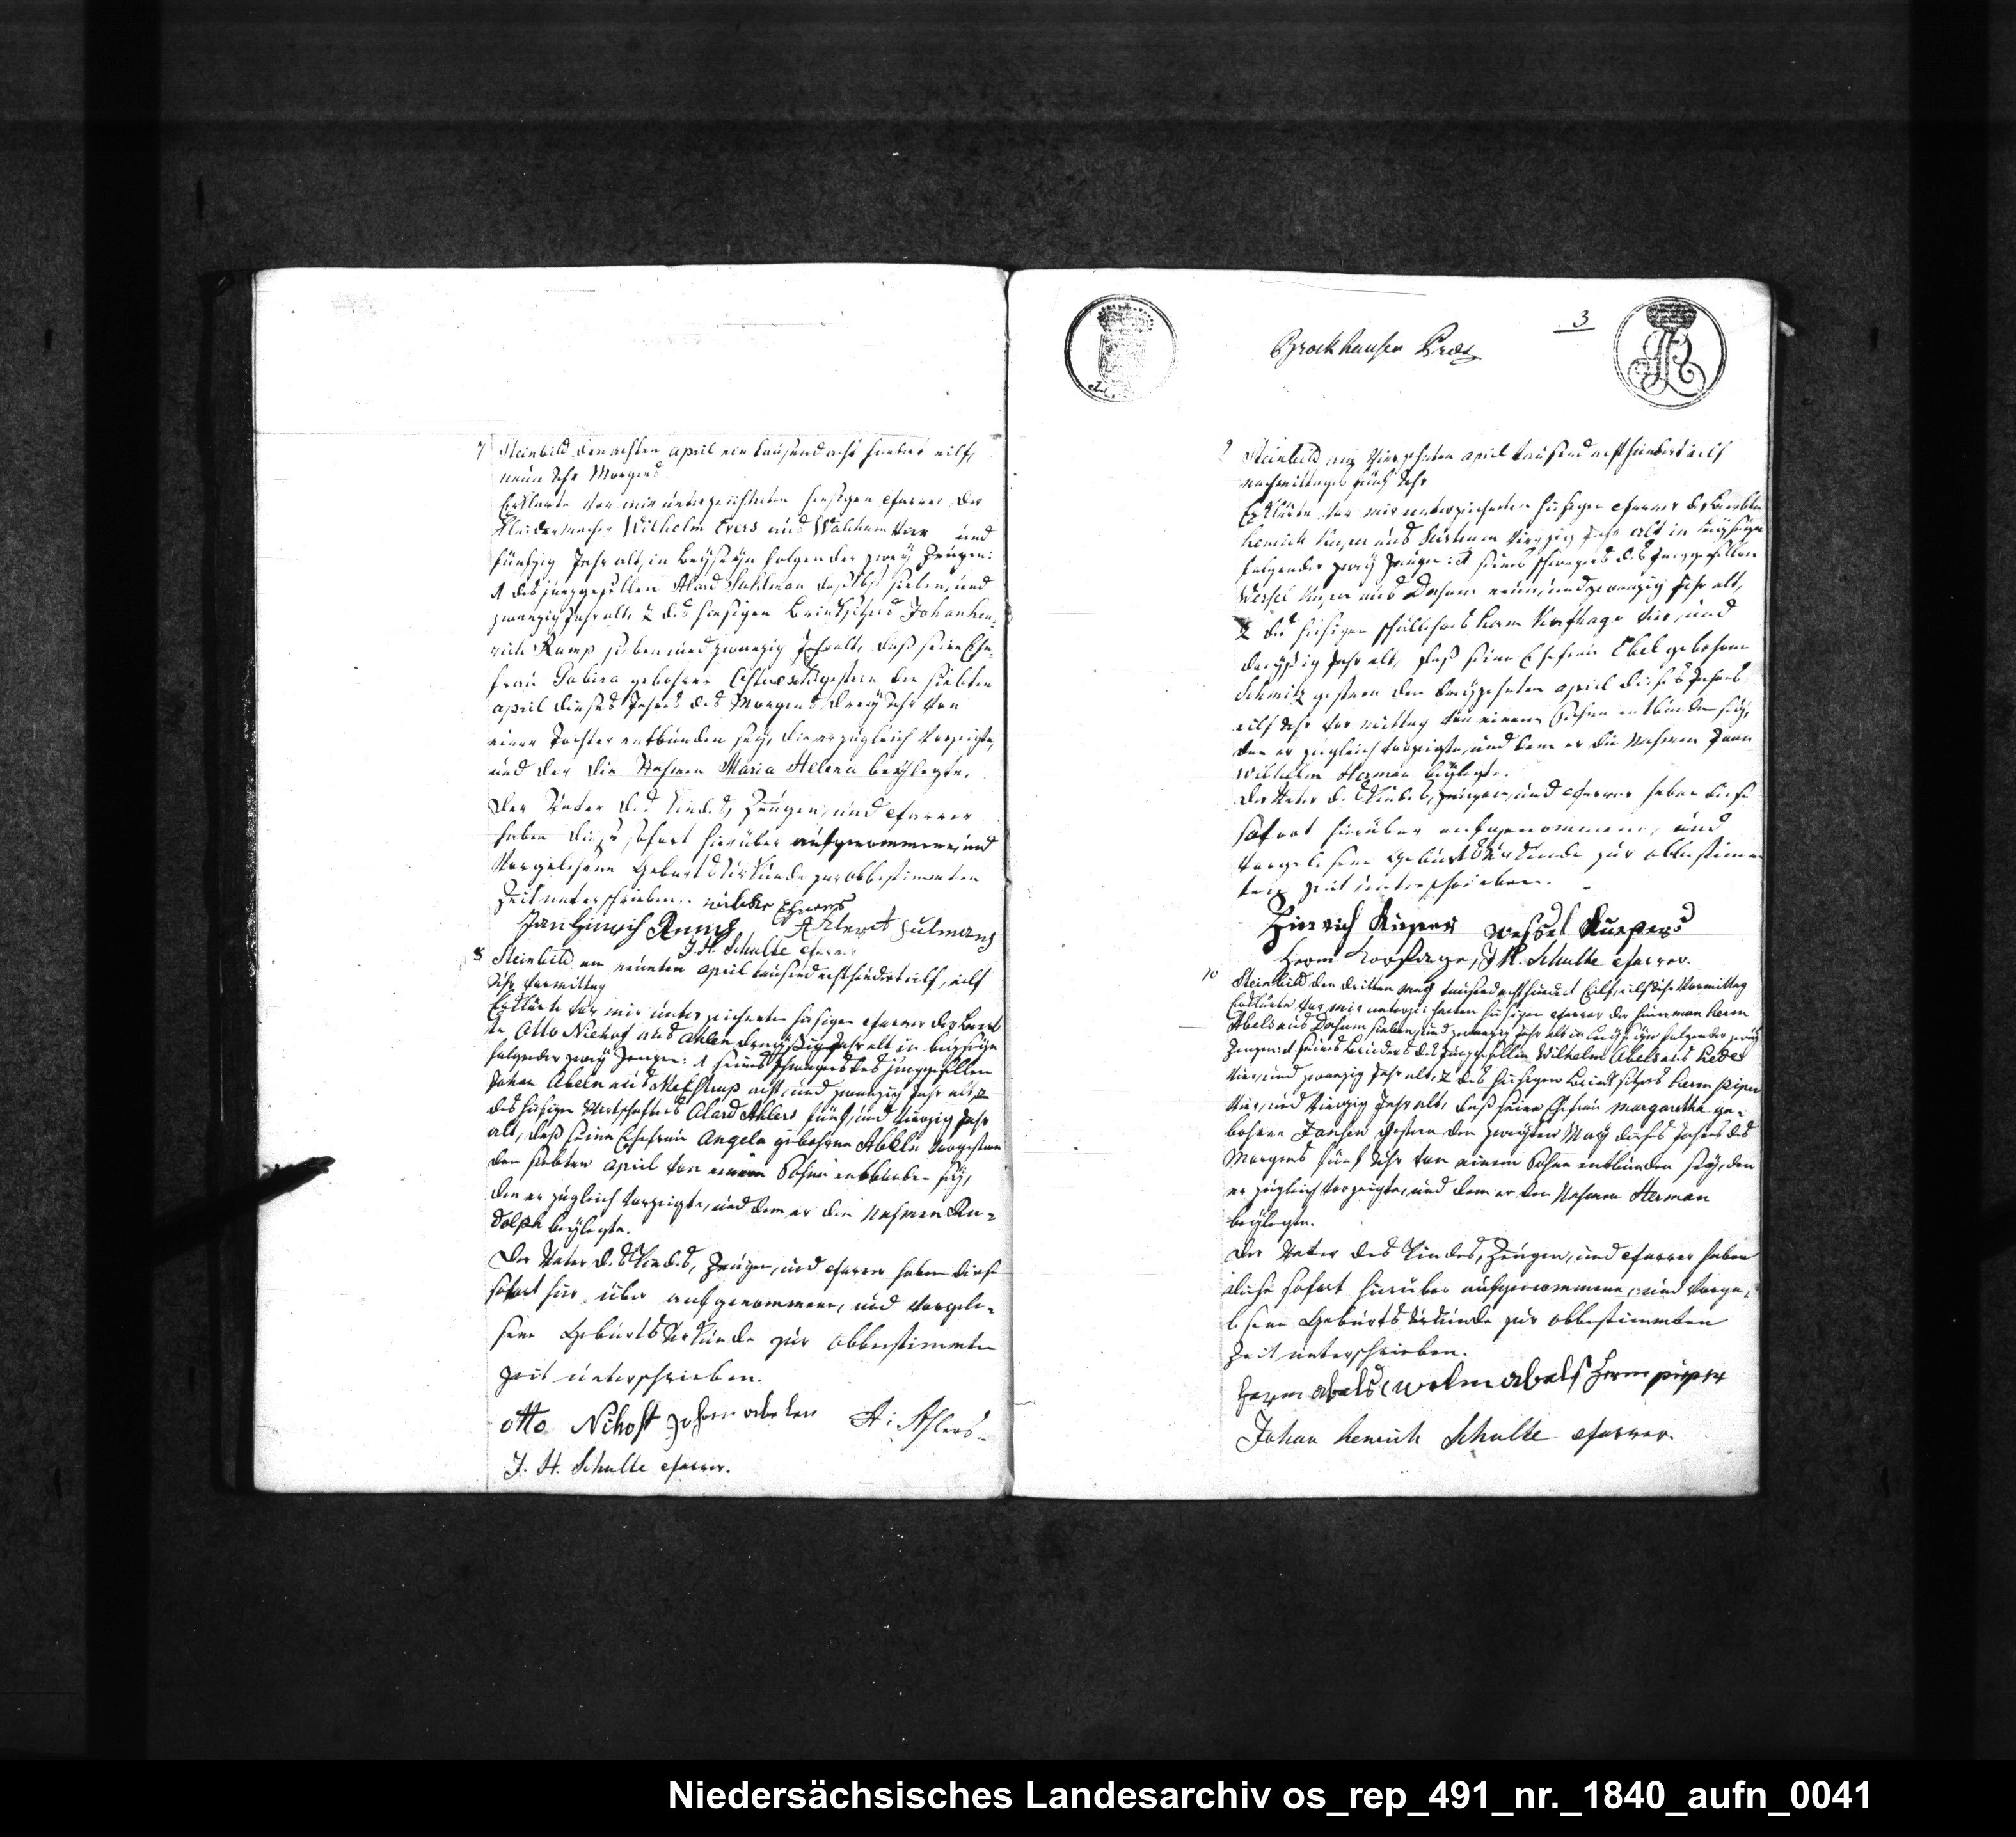 7 Steinbild den achten april ein tausend acht hundert eilf,
neun Uhr Morgens
Erklärte vor mir unterzeichneten hiesigen Pfarrer der
Kleidermacher Wilhelm Evers aus Walchum vier und
fünfzig Jahr alt, in beyseyn folgender zwey Zeugen:
1 des junggesellen Alard Suhlman daselbst sieben und
zwanzig Jahr alt, 2 des hiesigen Brinksitzers Johan Hen-
rich Ramp sieben und zwanzig Jahr alt, daß seine Ehe-
frau Gebina gebohrne gestern den siebten
april dieses Jahrs des Morgens drey Uhr von
einer Tochter entbunden sey, die er zugleich vorzeigte,
und der die Nahmen Maria Helena beylegte.
Der Vater des Kindes, Zeugen, und Pfarrer
haben diese sofort hierüber aufgenommene, und
vorgelesene Geburtsurkunde zur obbestimmten
Zeit unterschrieben. Evers
Jan Hinrich Ramp Allert Sulmans
J. H. Schulte Pfarrer
8 Steinbild am neunten april tausend acht hundert eilf, eilf
Uhr vormittag
Erklärte vor mir unterzeichneten hiesigen Pfarrer der Beerb-
te Otto Niehof aus Ahlen dreyßig Jahr alt in beyseyn
folgender zwey Zeugen: 1 seines Schwagers des junggesellen
Johan Abeln aus acht und zwanzig Jahr alt, 2
des hiesigen Alard Ahlers fünf und vierzig Jahr
alt, daß seine Ehefrau Angela gebohrne Abeln vorgestern
den siebten april von einem Sohne entbunden sey,
den er zugleich vorzeigte, und dem er die Nahmen Ru-
dolph beylegte.
Der Vater des Kindes, Zeugen, und Pfarrer haben diese
sofort hier über aufgenommene, und vorgele-
sene Geburts Urkunde zur obbestimmten
Zeit unterschrieben.
otto Nihoff Johan abelen A: Ahlers
J. H. Schulte Pfarrer.
3
9 Steinbild am vierzehnten april tausend acht hundert eilf
nachmittages fünf Uhr
Erklärte vor mir unterzeichneten hiesigen Pfarrer der Beerbte
Henrich aus vierzig Jahr alt in beyseyn
folgender zwey Zeugen: 1 seines Schwagers des junggesellen
Wessel aus Dersum neun und zwanzig Jahr alt,
2 des hiesigen Schullehrers Herm Korfhage vier und
dreyßig Jahr alt, daß seine Ehefrau Ebel gebohrne
Schmitz gestern den dreyzehnten april dieses Jahrs
eilf Uhr vormittag von einem Sohne entbunden sey,
den er zugleich vorzeigte, und dem er die Nahmen Joan
Wilhelm Herman beylegte.
Der Vater des Kindes, Zeugen, und Pfarrer haben diese
sofort hierüber aufgenommene, und
vorgelesene Geburts Urkunde zur obbestimm-
ten Zeit unterschrieben.
Hinrich Küper Wessel Kuepers
Herm Korfhage, J H. Schulte Pfarrer.
10 Steinbild den dritten may tausend acht hundert eilf, eilf Uhr Vormittag
Erklärte vor mir unterzeichneten hiesigen Pfarrer der Heuerman Herm
Abels aus Dersum sieben und zwanzig Jahr alt in beyseyn folgender zwey
Zeugen: 1 seines Bruders des Junggesellen Wilhelm Abels aus Hede
vier und zwanzig Jahr alt, 2 des hiesigen Brinksitzers Herm Piper
vier und vierzig Jahr alt, daß seine Ehefrau Margaretha ge-
bohrne Jansen gestern den zweyten May dieses Jahrs des
Morgens fünf Uhr von einem Sohne entbunden sey, den
er zugleich vorzeigte, und dem er den Nahmen Herman
beylegte.
Der Vater des Kindes, Zeugen, und Pfarrer haben
diese sofort hierüber aufgenommene, und vorge-
lesene Geburts Urkunde zur obbestimmten
Zeit unterschrieben.
Herm abels Wilm abels Herm piper
Johan Henrich Schulte Pfarrer.
Niedersächsisches Landesarchiv os_rep_491_nr._1840_aufn_0041